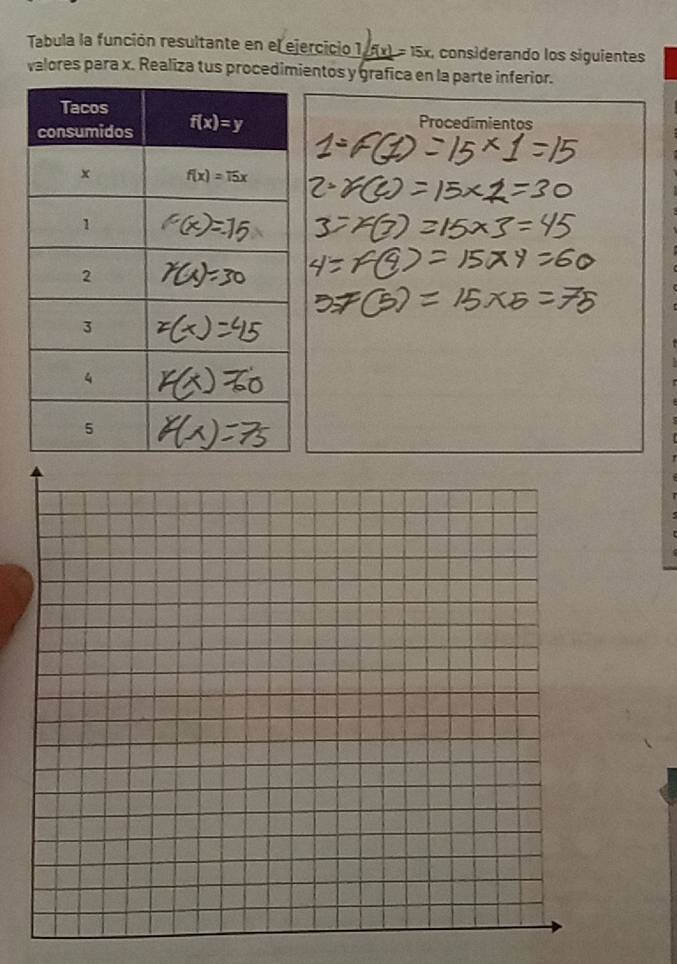 Tabula la función resultante en el ejercicio 1, f(x) = 15x, considerando los siguientes
valores para x. Realiza tus procedimientos y grafica en la parte inferior.
Tacos consumidos
f(x) = y
x
f(x) = 15x
1
F(x)=15
2
F(x)=30
3
F(x)=45
4
F(x)=60
5
F(x)=75
Procedimientos
1=F(1)=15×1=15
2=F(2)=15×2=30
3=F(3)=15×3=45
4=F(4)=15×4=60
5=F(5)=15×5=75